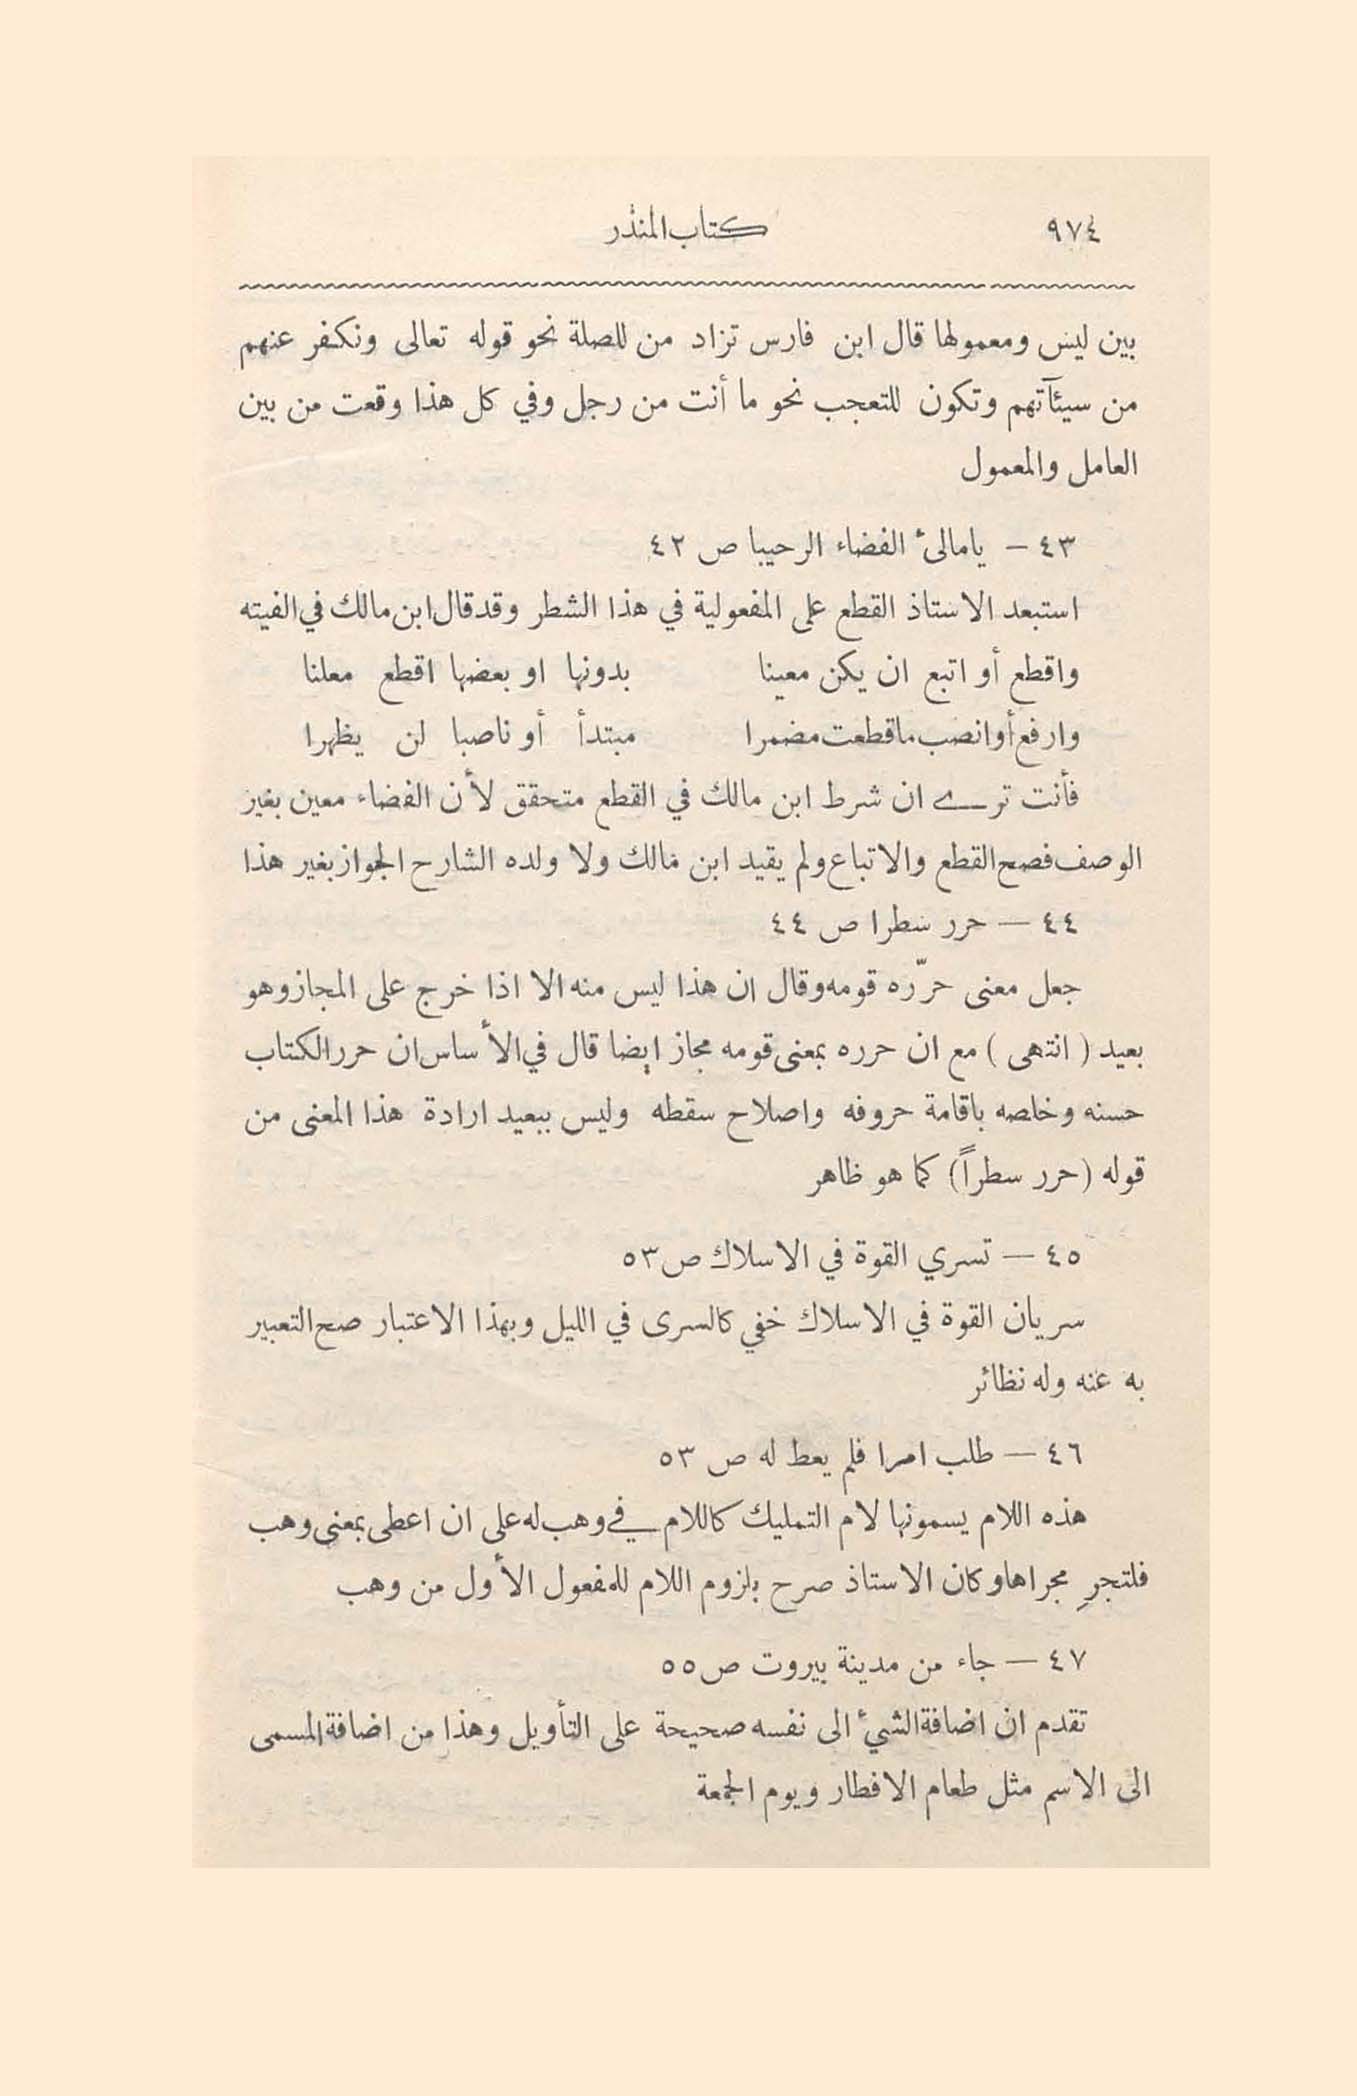 ٩٧٤ كتاب المنذر
بين ليس ومعمولها قال ابن فارس تزاد من للصلة نحو قوله تعالى ونكفر عنهم
من سيئآتهم وتكون للتعجب نحو ما أنت من رجل وفي كل هذا وقعت من بين
العامل والمعمول
٤٣ — يا مالئ الفضاء الرحيبا ص ٤٢
استبعد الاستاذ القطع على المفعولية في هذا الشطر وقد قال ابن مالك في الفيته
واقطع أو اتبع ان يكن معينا بدونها او بعضها اقطع معلنا
وارفع أو انصب ما قطعت مضمرا مبتدأ أو ناصبا لن يظهرا
فأنت ترى ان شرط ابن مالك في القطع متحقق لأن الفضاء معين بغير
الوصف فصح القطع والاتباع ولم يقيد ابن مالك ولا ولده الشارح الجواز بغير هذا
٤٤ — حرر سطرا ص ٤٤
جعل معنى حرّره قومه وقال ان هذا ليس منه الا اذا خرج على المجاز وهو
بعيد ( انتهى ) مع ان حرره بمعنى قومه مجاز ايضا قال في الأساس ان حرر الكتاب
حسنه وخلصه باقامة حروفه واصلاح سقطه وليس ببعيد ارادة هذا المعنى من
قوله (حرر سطراً) كما هو ظاهر
٤٥ — تسري القوة في الاسلاك ص ٥٣
سريان القوة في الاسلاك خفي كالسرى في الليل وبهذا الاعتبار صح التعبير
به عنه وله نظائر
٤٦ — طلب امرا فلم يعط له ص ٥٣
هذه اللام يسمونها لام التمليك كاللام في وهب له على ان اعطى بمعنى وهب
فلتجرِ مجراها وكان الاستاذ صرح بلزوم اللام للمفعول الأول من وهب
٤٧ — جاء من مدينة بيروت ص ٥٥
تقدم ان اضافة الشيء الى نفسه صحيحة على التأويل وهذا من اضافة المسمى
الى الاسم مثل طعام الافطار ويوم الجمعة